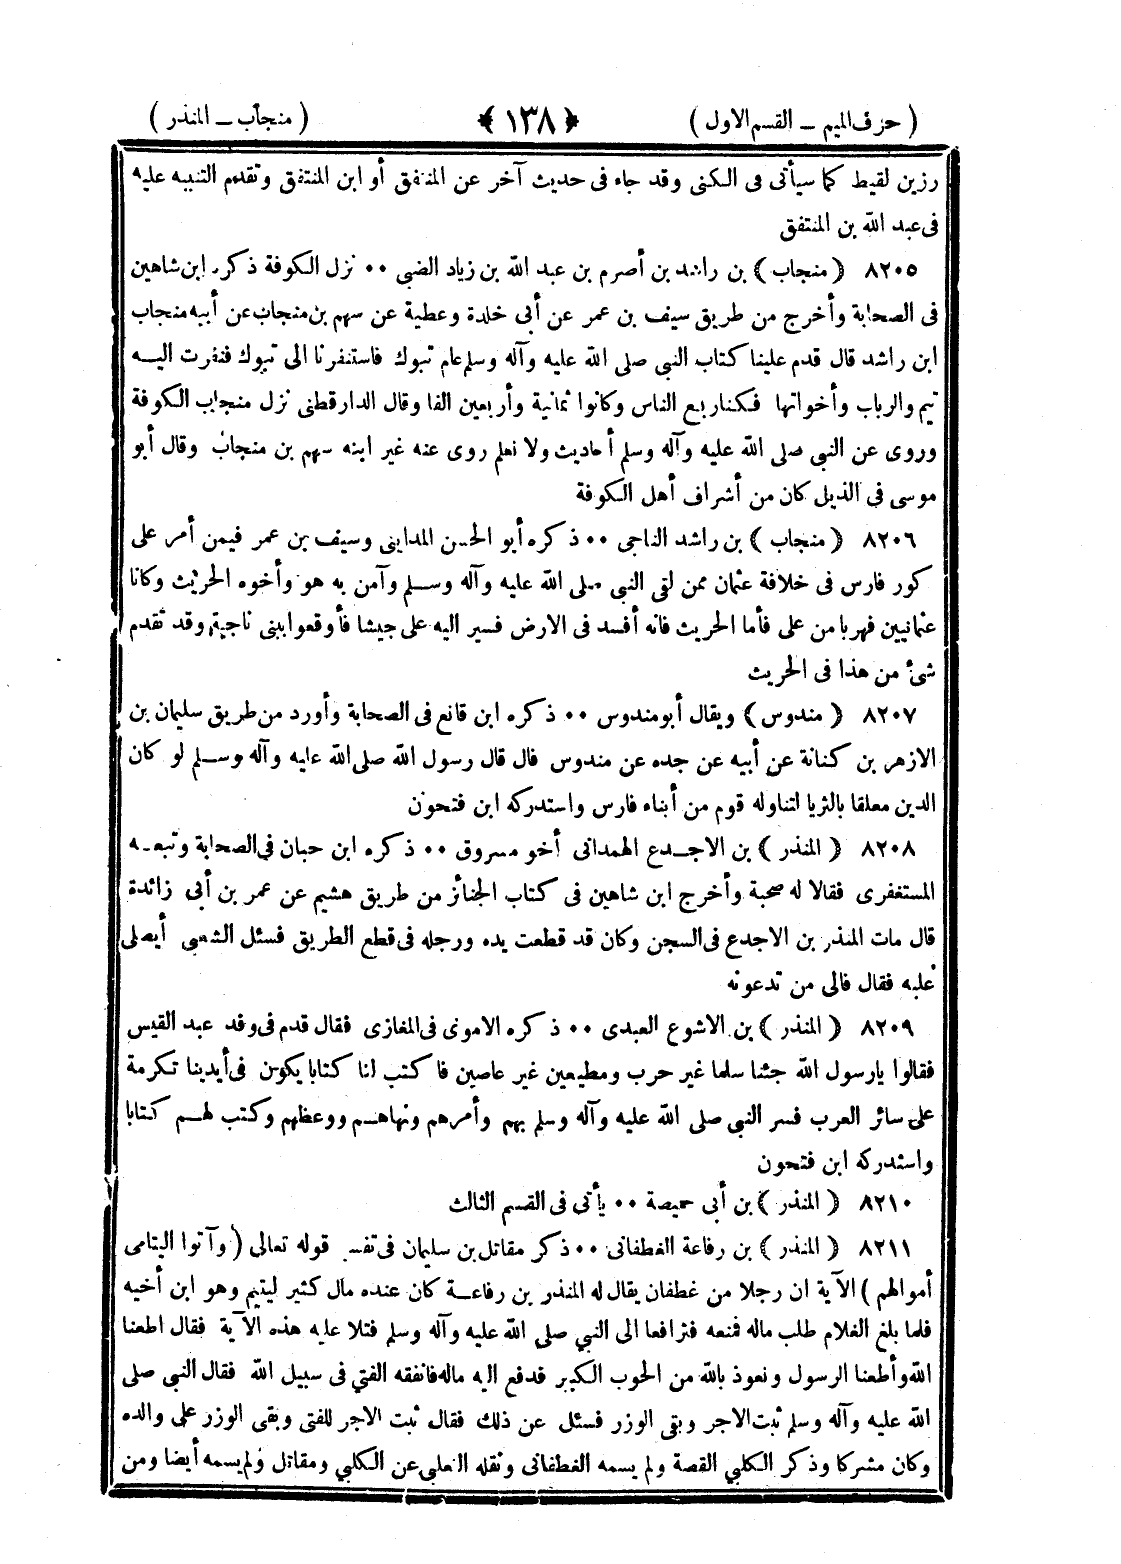 ( حرف الميم ــ القسم الاول )
﴿ ١٣٨ ﴾
( منجاب ــ المنذر )
رزين لقيط كما سيأتى فى الكنى وقد جاء فى حديث آخر عن المنتفق أو ابن المنتفق وتقدم التنبيه عليه
فى عبد الله بن المنتفق
٨٢٠٥ ( منجاب ) بن راشد بن أصرم بن عبد الله بن زياد الضبى ٠٠ نزل الكوفة ذكره ابن شاهين
فى الصحابة وأخرج من طريق سيف بن عمر عن أبى خلدة وعطية عن سهم بن منجاب عن أبيه منجاب
ابن راشد قال قدم علينا كتاب النبى صلى الله عليه وآله وسلم عام تبوك فاستنفرنا الى تبوك فنفرت اليه
تيم والرباب وأخواتها فكنا ربع الناس وكانوا ثمانية وأربعين الفا وقال الدارقطنى نزل منجاب الكوفة
وروى عن النبى صلى الله عليه وآله وسلم أحاديث ولا نعلم روى عنه غير ابنه سهم بن منجاب وقال أبو
موسى فى الذيل كان من أشراف أهل الكوفة
٨٢٠٦ ( منجاب ) بن راشد الناجى ٠٠ ذكره أبو الحسن المداينى وسيف بن عمر فيمن أمر على
كور فارس فى خلافة عثمان ممن لقى النبى صلى الله عليه وآله وسلم وآمن به هو وأخوه الحريث وكانا
عثمانيين فهربا من على فأما الحريث فانه أفسد فى الارض فسير اليه على جيشا فأوقعوا ببنى ناجية وقد تقدم
شئ من هذا فى الحريث
٨٢٠٧ ( مندوس ) ويقال أبو مندوس ٠٠ ذكره ابن قانع فى الصحابة وأورد من طريق سليمان بن
الازهر بن كنانة عن أبيه عن جده عن مندوس قال قال رسول الله صلى الله عليه وآله وسلم لو كان
الدين معلقا بالثريا لتناوله قوم من أبناء فارس واستدركه ابن فتحون
٨٢٠٨ ( المنذر ) بن الاجدع الهمدانى أخو مسروق ٠٠ ذكره ابن حبان فى الصحابة وتبعه
المستغفرى فقالا له صحبة وأخرج ابن شاهين فى كتاب الجنائز من طريق هشيم عن عمر بن أبى زائدة
قال مات المنذر بن الاجدع فى السجن وكان قد قطعت يده ورجله فى قطع الطريق فسئل الشعبى أيصلى
عليه فقال فالى من تدعونه
٨٢٠٩ ( المنذر ) بن الاشوع العبدى ٠٠ ذكره الاموى فى المغازى فقال قدم فى وفد عبد القيس
فقالوا يارسول الله جئنا سلما غير حرب ومطيعين غير عاصين فاكتب لنا كتابا يكون فى أيدينا تكرمة
على سائر العرب فسر النبى صلى الله عليه وآله وسلم بهم وأمرهم ونهاهم ووعظهم وكتب لهم كتابا
واستدركه ابن فتحون
٨٢١٠ ( المنذر ) بن أبى حميصة ٠٠ يأتى فى القسم الثالث
٨٢١١ ( المنذر ) بن رفاعة الغطفانى ٠٠ ذكر مقاتل بن سليمان فى تفسير قوله تعالى ( وآتوا اليتامى
أموالهم ) الآية ان رجلا من غطفان يقال له المنذر بن رفاعة كان عنده مال كثير ليتيم وهو ابن أخيه
فلما بلغ الغلام طلب ماله فمنعه فترافعا الى النبي صلى الله عليه وآله وسلم فتلا عليه هذه الآية فقال اطعنا
الله وأطعنا الرسول ونعوذ بالله من الحوب الكبير فدفع اليه ماله فانفقه الفتي فى سبيل الله فقال النبى صلى
الله عليه وآله وسلم ثبت الاجر وبقى الوزر فسئل عن ذلك فقال ثبت الاجر للفتى وبقى الوزر على والده
وكان مشركا وذكر الكلبي القصة ولم يسمه الغطفانى ونقله الثعلبى عن الكلبي ومقاتل ولم يسمه أيضا ومن